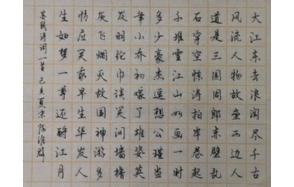 大江东去浪淘尽千古
风流人物故垒西边人
道是三国周郎赤壁乱
石穿空惊涛拍岸卷起
千堆雪江山如画一时
多少豪杰遥想公瑾当
年小乔初嫁了雄姿英
发羽扇纶巾谈笑间樯橹
灰飞烟灭故国神游多
情应笑我早生华发人
生如梦一尊还酹江月
苏轼诗词一首 己亥夏